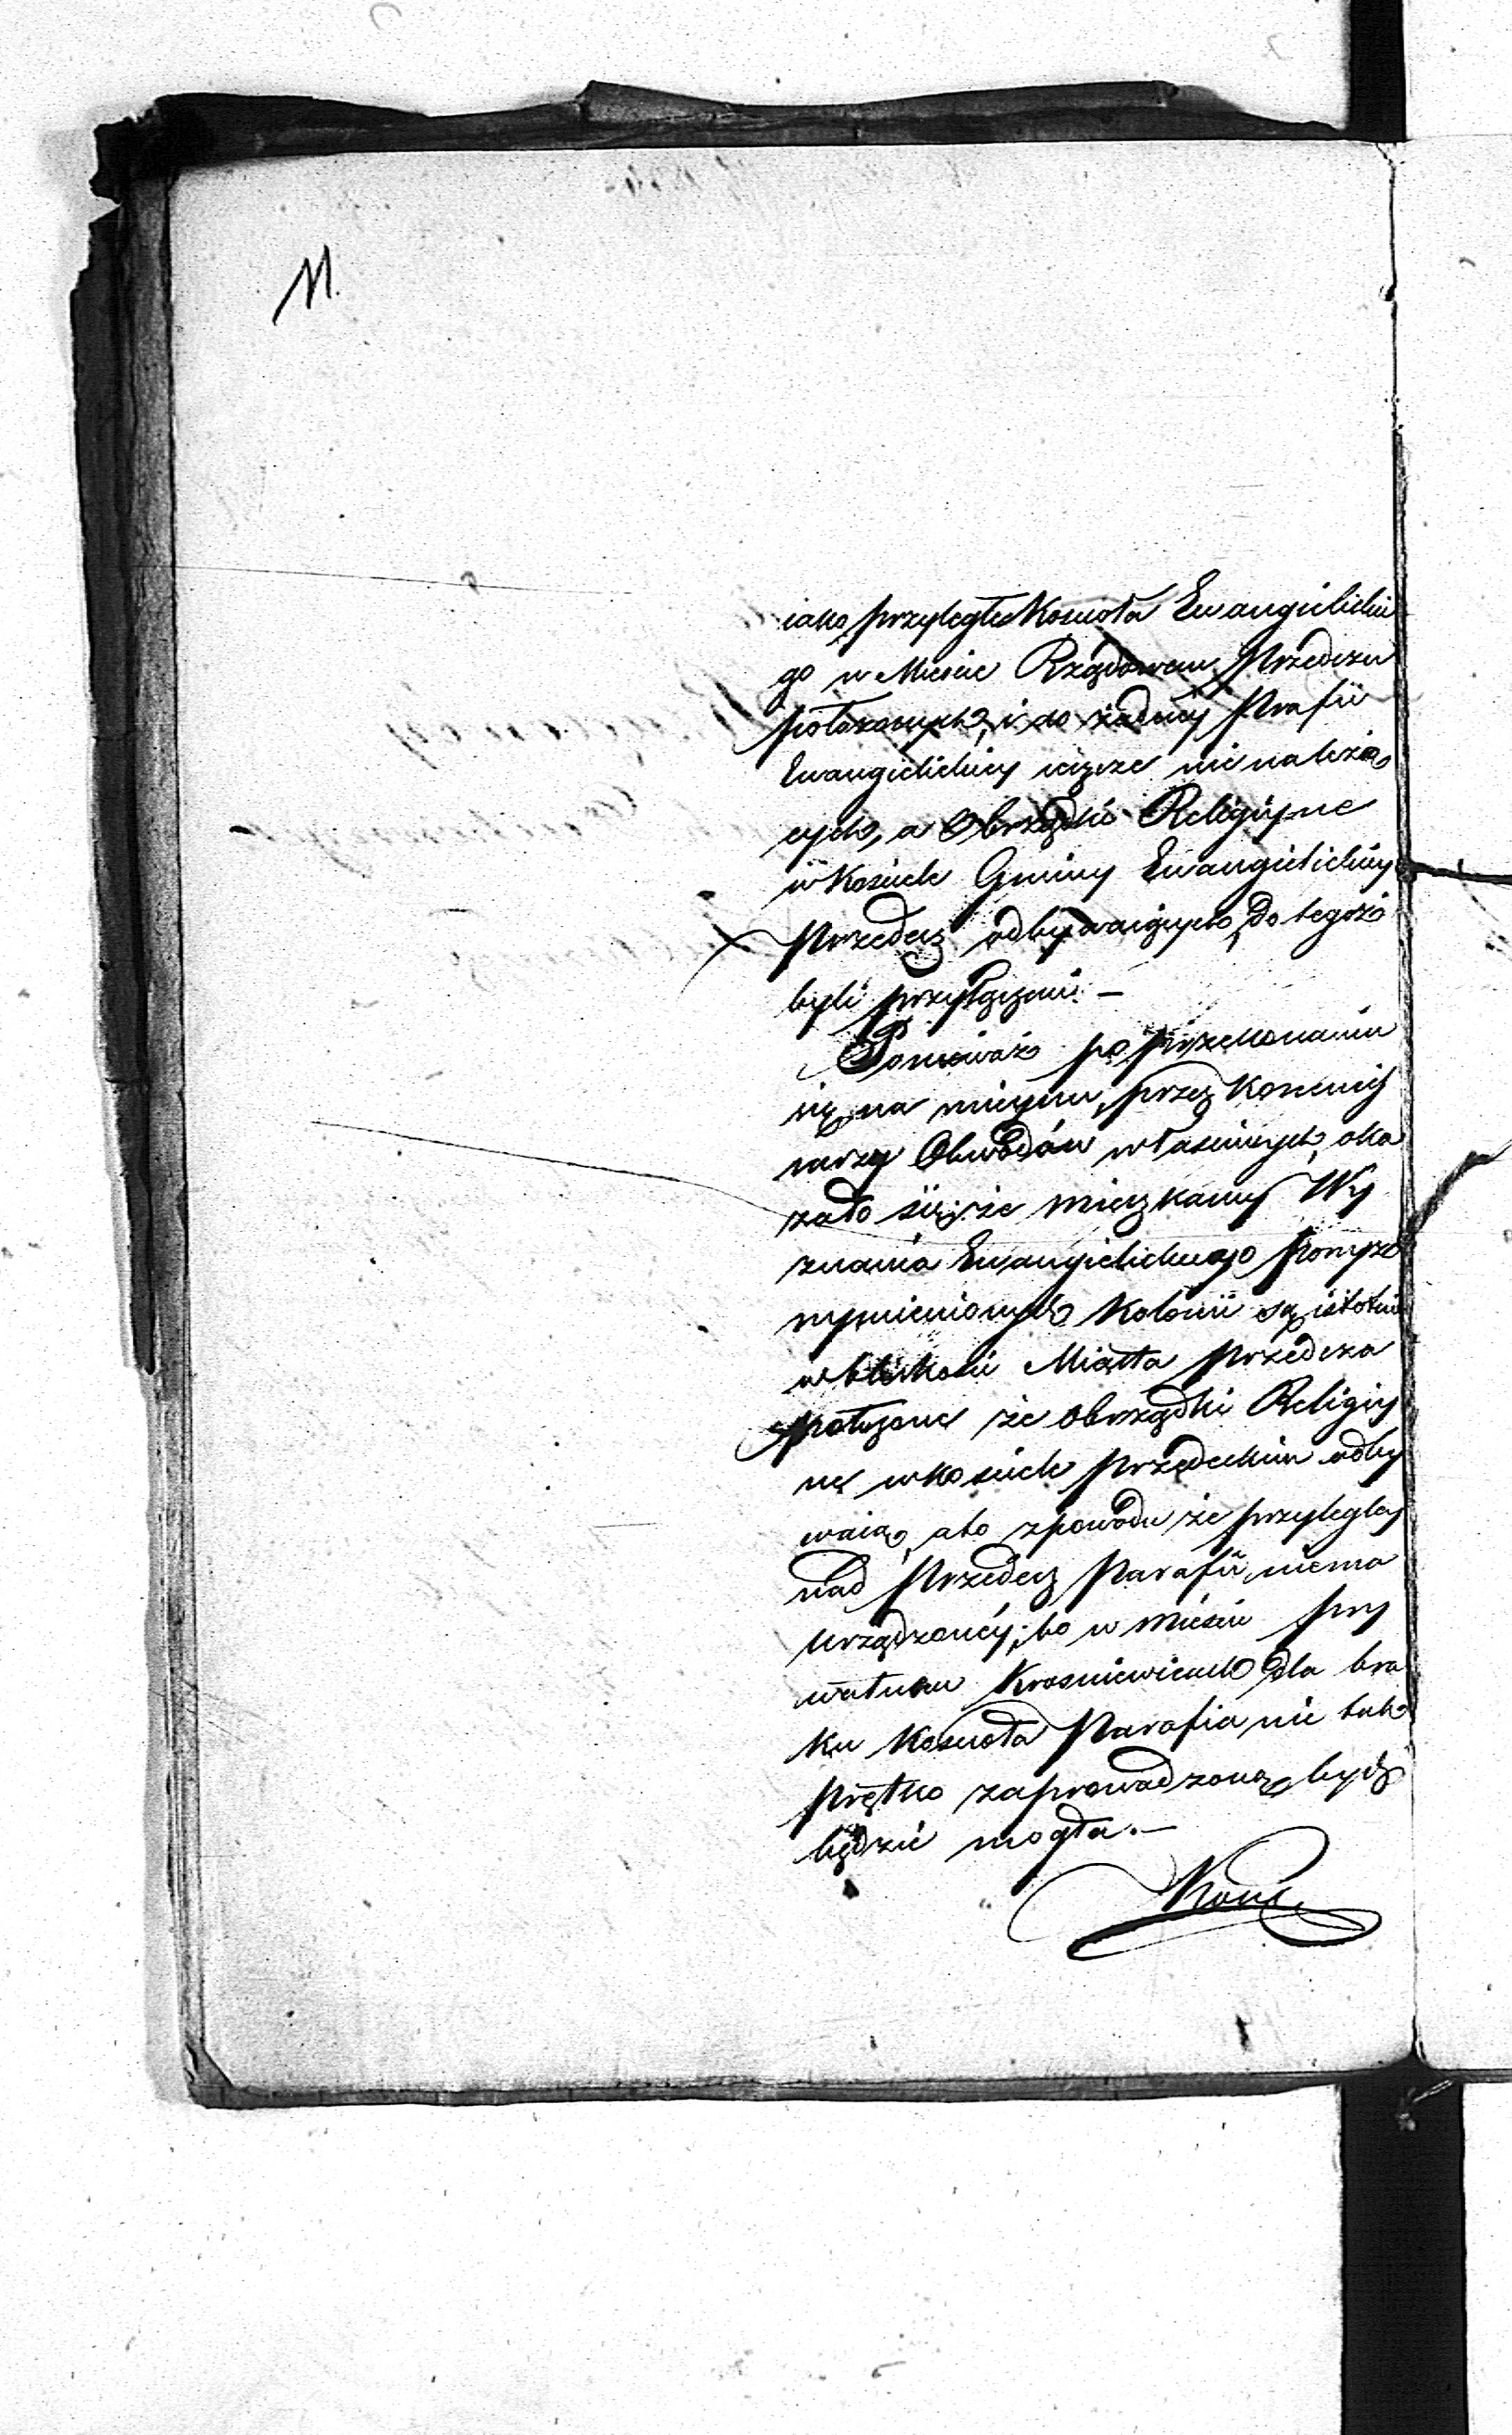 11.
iako przyległe Kościoła Ewangielickie
go w Mieście Rządowem Przedczu
położonych, i do żadney Prafii
Ewangielickiey ieszcze nie należą
cych, a Obrządki Religiyne
w Kościele Gminy Ewangielickiey
Przedecz odbywaiących, do tegoż
byli przyłączeni. —
Ponieważ po przekonaniu
się na mieyscu, przez Kommis
sarzy Obwodów właściwych, oka
zało się, że mieszkańcy Wy
znania Ewangielickiego powyżd
wymienionych Kolonii są istotnie
w bliskości Miasta Przedcza
położone że obrządki Religiy
ne w kościele Przedeckim odby
waią, a to z powodu że przyległey
nad Przedecz Parafii niema
urządzonéy; bo w mieście pry
watnem Krosniewicach dla bra
ku Kościoła Parafia nie tak
prętko zaprowadzoną bydź
będzie mogła. —